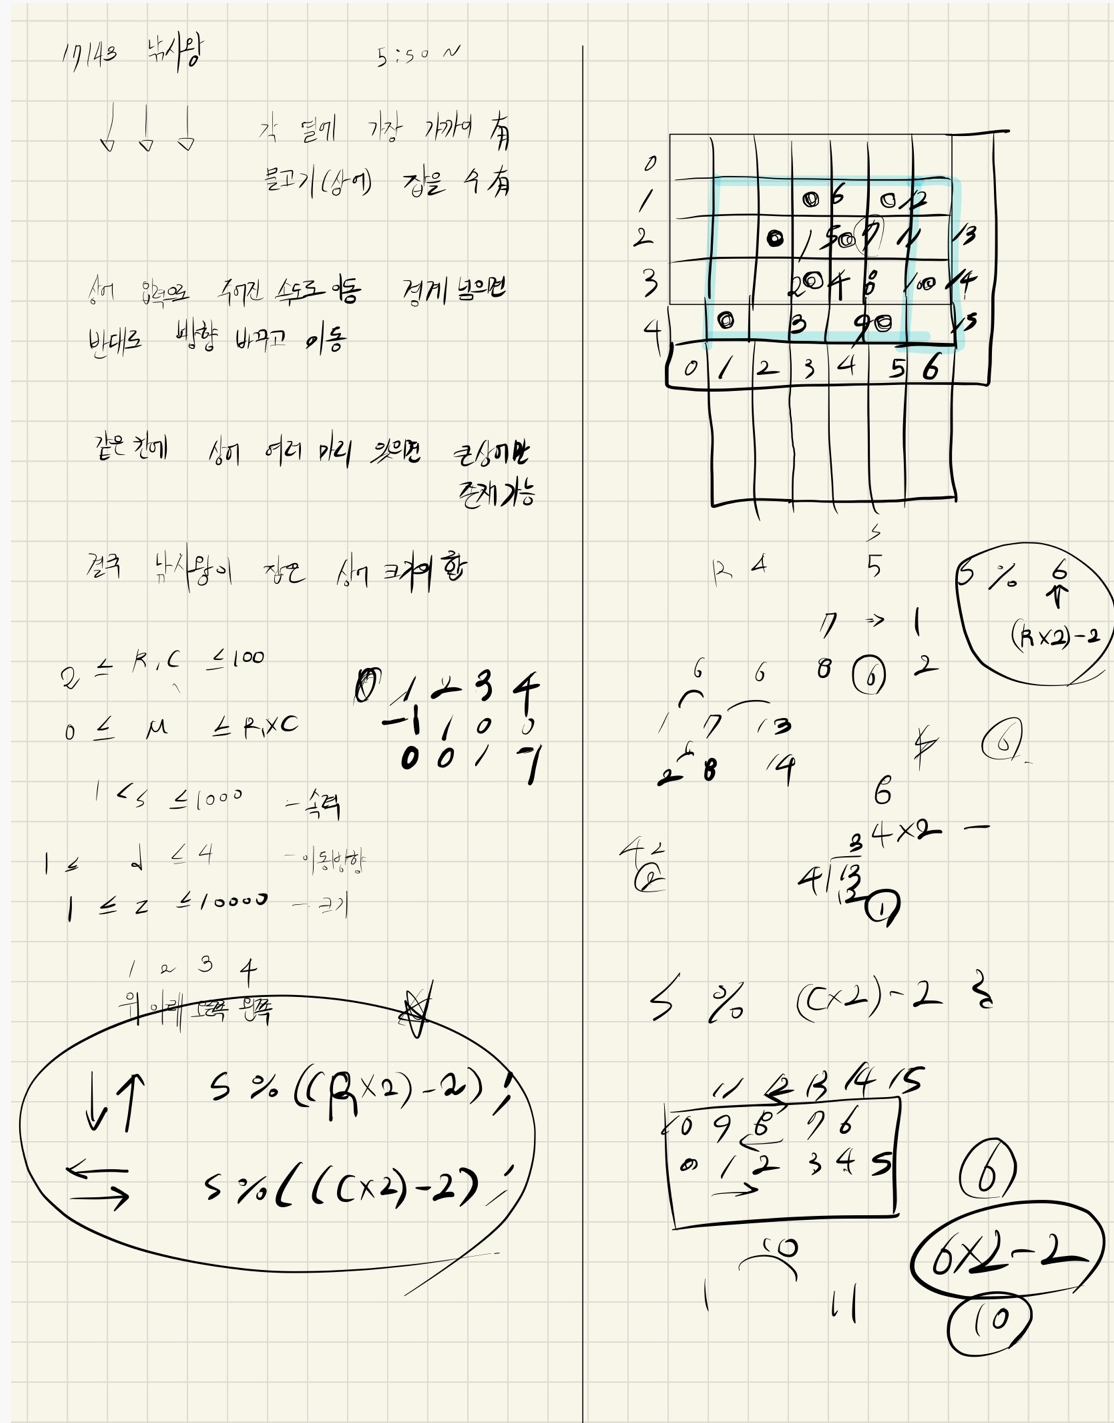 17143 낚시왕 5:50 ~
각 열에 가장 가까이 有
물고기(상어) 잡을 수 有
상어 입력으로 주어진 속도로 이동 경계 넘으면
반대로 방향 바꾸고 이동
같은 칸에 상어 여러 마리 있으면 큰상어만
존재 가능
결국 낚시왕이 잡은 상어 크기의 합
2 ≤ R, C ≤ 100
0 ≤ M ≤ R×C
0 1 2 3 4
-1 1 0 0
0 0 1 -1
1 < s ≤ 1000 - 속력
1 ≤ d ≤ 4 - 이동방향
1 ≤ z ≤ 10000 - 크기
1 2 3 4
위 아래 오른쪽 왼쪽
↓↑ S % ((R×2)-2);
←→ S % (((C×2)-2);
0
1 6 12
2 1 5 7 11 13
3 2 4 8 10 14
4 3 9 15
0 1 2 3 4 5 6
S
R 4 5
S % 6
(R×2)-2
7 → 1
8 6 2
6 6
1 7 13
6
2 8 14
6
6
4×2 -
4 2
2
3
4 13
12
1
S % (C×2)-2 }
11 12 13 14 15
10 9 8 7 6
0 1 2 3 4 5
6
6×2-2
10
10
1 11